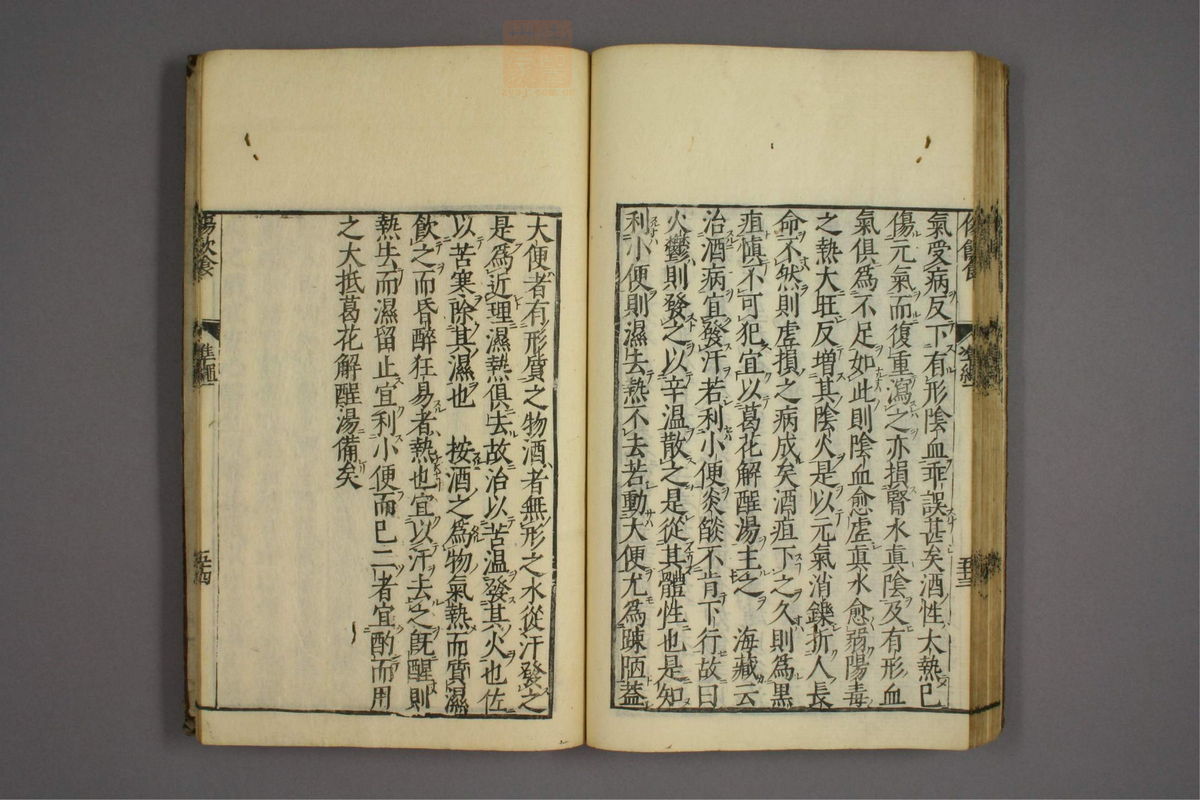 氣受病反下有形陰血乖誤甚矣酒性太熱已
傷元氣而復重瀉之亦損腎水眞陰及有形血
氣俱爲不足如此則陰血愈虛眞水愈弱陽毒
之熱大旺反增其陰火是以元氣消鑠折人長
命不然則虛損之病成矣酒疸下之久則爲黑
疸愼不可犯宜以葛花解酲湯主之　海藏云
治酒病宜發汗若利小便炎㷔不肯下行故曰
火鬱則發之以辛溫散之是從其體性也是知
利小便則濕去熱不去若動大便尤爲踈陋蓋
大便者有形質之物酒者無形之水從汗發之
是爲近理濕熱俱去故治以苦溫發其火也佐
以苦寒除其濕也　按酒之爲物氣熱而質濕
飮之而昏醉狂易者熱也宜以汗去之旣醒則
熱去而濕留止宜利小便而已二者宜酌而用
之大抵葛花解酲湯備矣
傷飮食
準繩
五十四